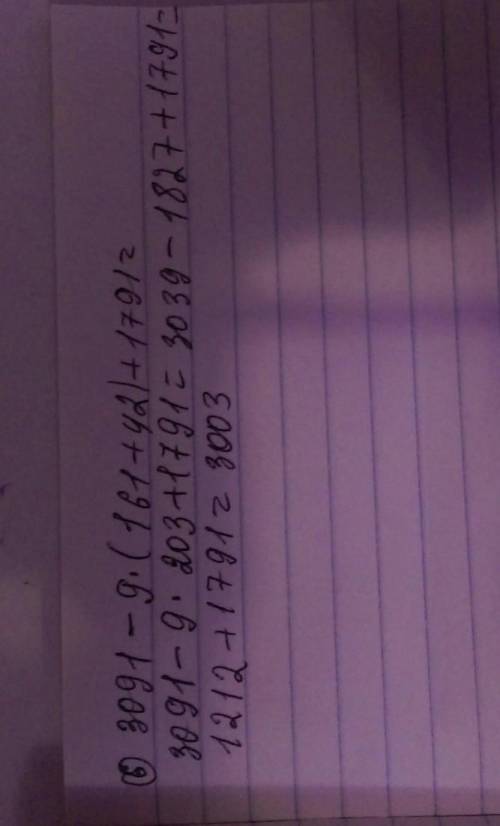 ⑥ 3091 - 9 · (161 + 42) + 1791 =
3091 - 9 · 203 + 1791 = 3039 - 1827 + 1791 =
1212 + 1791 = 3003